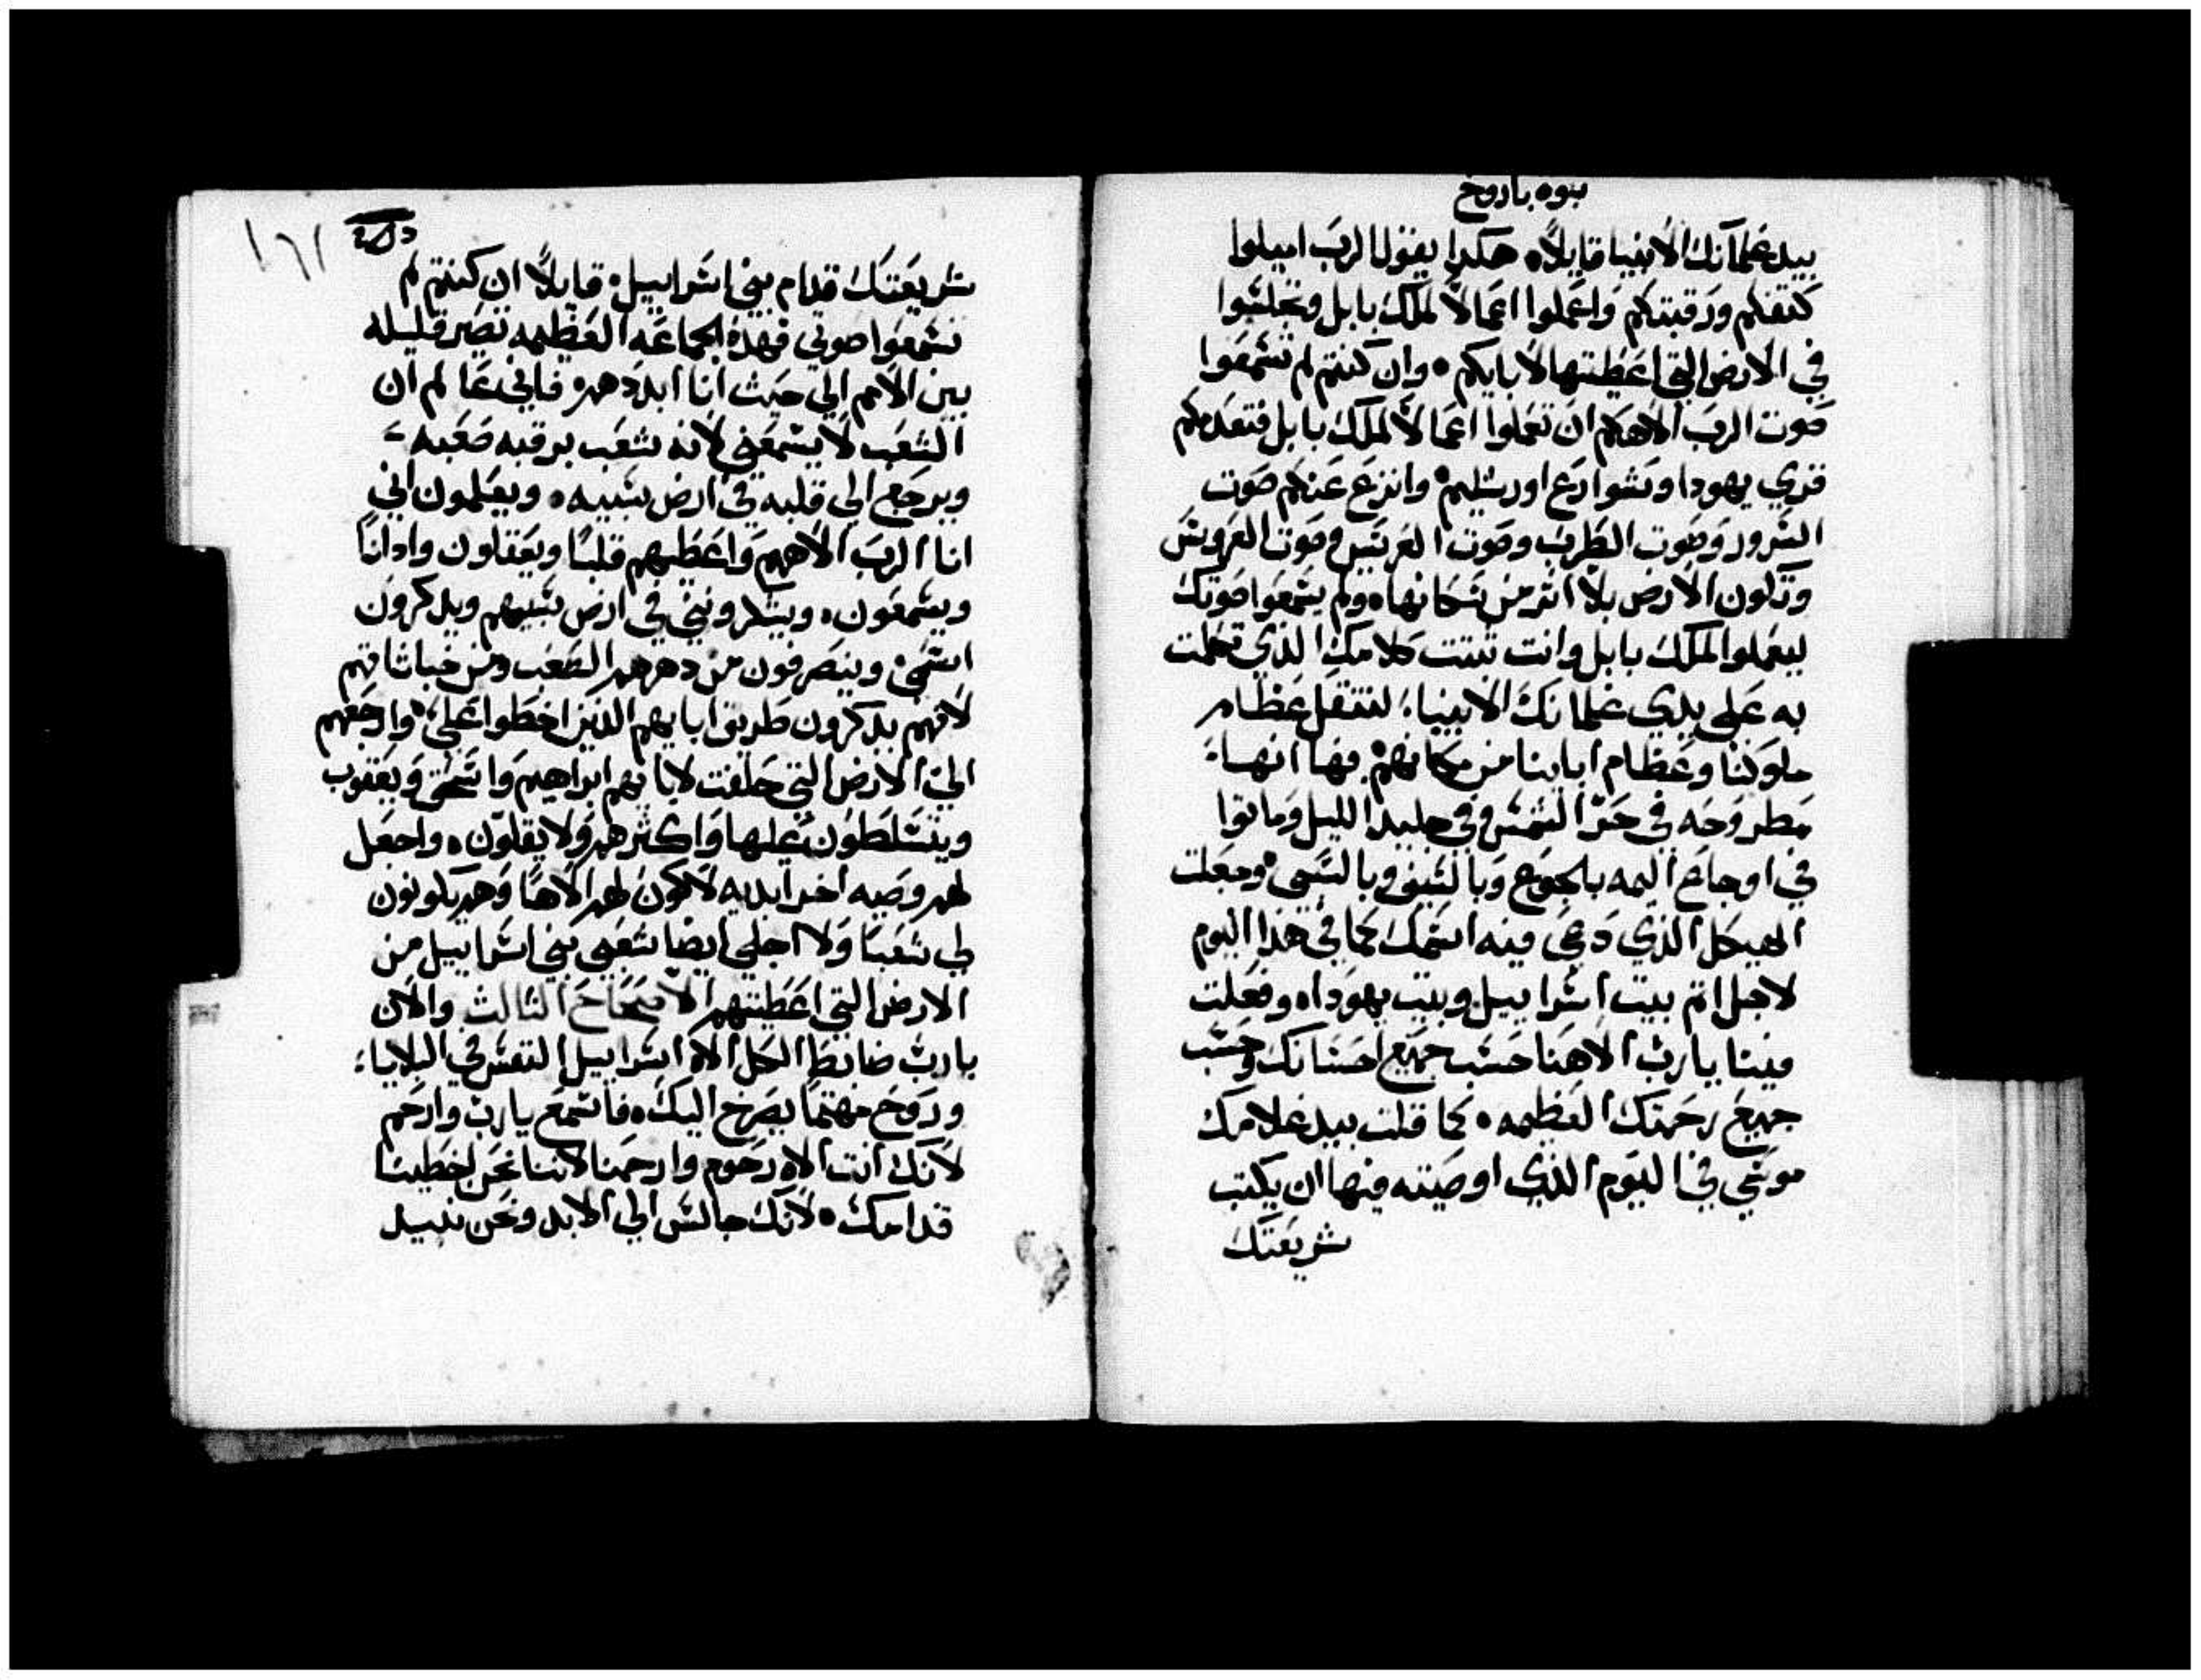 نبوه باروخ
بيد غلمانك الانبيا قايلاً ٥ هكدا يقول الرب اميلوا
كتفكم ورقبتكم واعملوا اعمالاً لملك بابل وتجلسوا
في الارض التي اعطيتها لابايكم ٥ وان كنتم لم تسمعوا
صوت الرب الاهكم ان تعملوا اعمالاً لملك بابل فتعدمكم
قري يهودا وشوارع اورشليم ٥ وانزع عنكم صوت
السرور وصوت الطرب وصوت العريس وصوت العروس
وتكون الارض بلا اثر من سكانها ٥ ولم يسمعوا صوتك
ليعملوا لملك بابل وانت تبتت كلامك الذي تكلمت
به علي يدي غلمانك الانبياء لتنتقل عظام
ملوكنا وعظام ابابنا من مكانهم ٥ فها انهاء
مطروحه في حر الشمس وفي جليد الليل وماتوا
في اوجاع اليمه بالجوع وبالسيف وبالسبي ٥ وجعلت
الهيكل الذي دعي فيه اسمك كما في هذا اليوم
لاجل اتم بيت اسراييل وبيت يهودا ٥ وفعلت
فينا يارب الاهنا حسب جميع احسانك وحسب
جميع رحمتك العظيمه ٥ كما قلت بيد غلامك
موسي في اليوم الذي اوصيته فيها ان يكتب
شريعتك
١٦١
شريعتك قدام بني اسراييل ٥ قايلاً ان كنتم لم
تسمعوا صوتي فهذه الجماعه العظيمه تصير قليله
بين الامم الي حيث انا ابددهم ٥ فاني عالم ان
الشعب لا يسمعني لانه شعب برقبه صعبه
ويرجع الي قلبه في ارض سبيه ٥ ويعلمون اني
انا الرب الاههم واعطيهم قلبًا ويعقلون واداناً
ويسمعون ٥ ويشكرونني في ارض سبيهم ويدكرون
اسمي وينصرفون من دهرهم الصعب ومن خباثاتهم
لانهم يدكرون طريق ابايهم الذين اخطوا علي ٥ وارجعهم
الي الارض التي حلفت لابايهم ابراهيم واسحق ويعقوب
ويتسلطون عليها واكثرهم ولا يقلون ٥ واجعل
لهم وصيه اخر ابديه لاكون لهم الاهًا وهم يكونون
لي شعبًا ولا اجلي ايضا شعبي بني اسراييل من
الارض التي اعطيتهم الاصحاح الثالث والان
يارب ضابط الكل الاه اسراييل النفس في البلاياء
وروح مهتمًا يصرخ اليك ٥ فاسمع يارب وارحم
لانك انت الاه رحوم وارحمنا لاننا نحن اخطينا
قدامك ٥ لانك جالس الي الابد ونحن نبيد